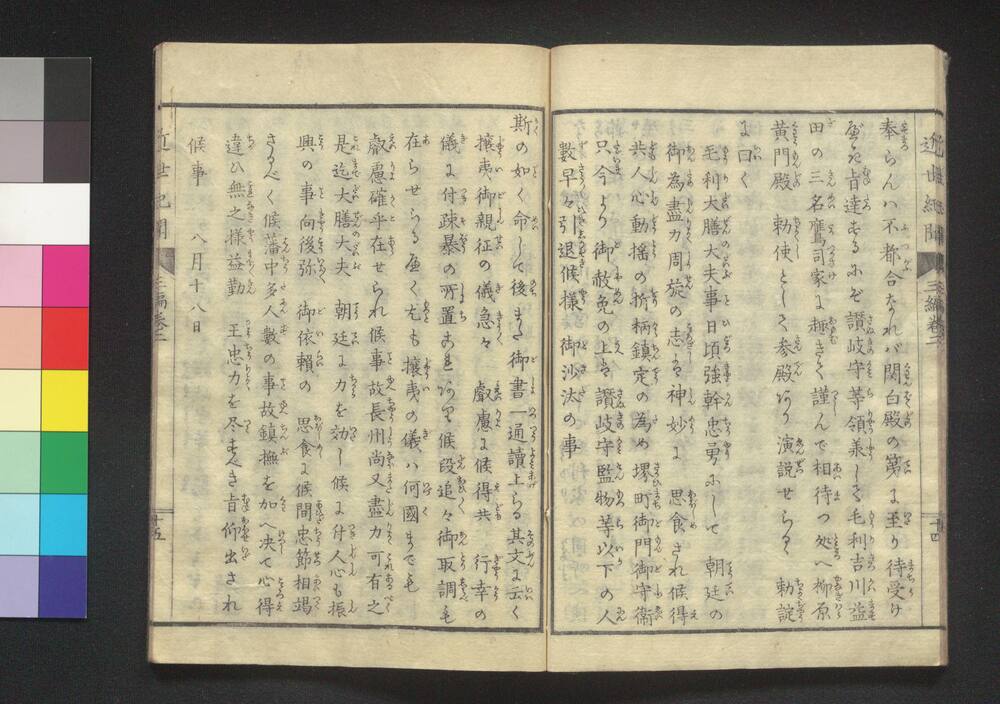 近世紀聞 三編巻二 十四
奉らんハ不都合なれバ関白殿の第に至り待受け
べき旨達するにぞ讃岐守等領承して毛利吉川益
田の三名鷹司家に趣きて謹んで相待つ処へ柳原
黄門殿 勅使として参殿あり演説せらるゝ 勅諚
に曰く
毛利大膳大夫事日頃強幹忠勇にして 朝廷の
御為盡力周旋の志ある神妙に 思食され候得
共人心動揺の折柄鎮定の為め堺町御門御守衛
只今より御赦免の上は讃岐守監物等以下の人
數早々引退候様 御沙汰の事
斯の如く命して後また御書一通讀上らる其文に云く
攘夷御親征の儀急々 叡慮に候得共 行幸の
儀に付疎暴の所置これあり候段追々御取調も
在らせらるべく尤も攘夷の儀ハ何國までも
叡慮確乎在せられ候事故長州尚又盡力可有之
是迄大膳大夫 朝廷に力を効し候に付人心も振
興の事向後弥 御依頼の 思食に候間忠節相竭
さるべく候藩中多人數の事故鎮撫を加へ決て心得
違ひ無之様益勤 王忠力を尽すべき旨仰出され
候事
八月十八日
近世紀聞 三編巻二 十五